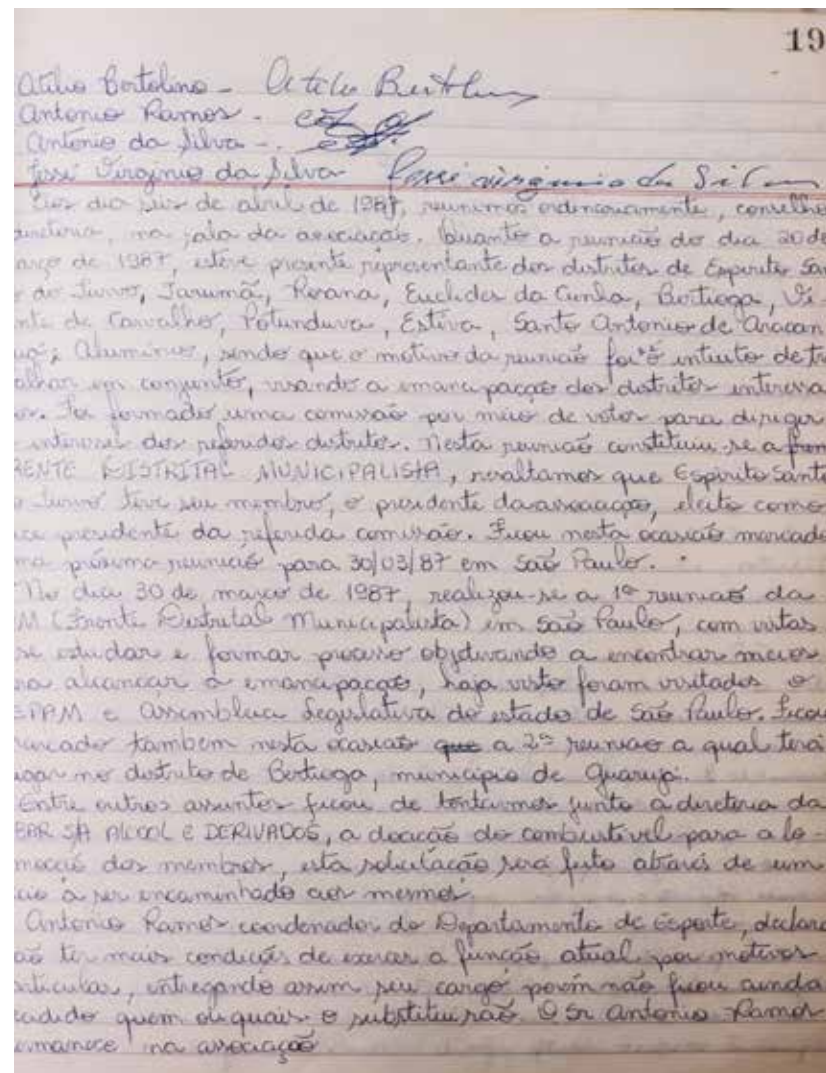 19
Atilio Bertolino - Atilio Bertolino
Antonio Ramos -
Antonio da Silva -
José Virginio da Silva José virginio da Silva
Aos dia seis de abril de 1987, reunimos ordinariamente, conselho
diretoria, na sala da associação. Quanto a reunião do dia 20 de
arço de 1987, esteve presente representante dos distritos de Espirito San
do Turvo, Tarumã, Rosana, Euclides da Cunha, Bertioga, Vi-
nte de Carvalho, Potunduva, Estiva, Santo Antonio de Aracan
uá, Aluminio, sendo que o motivo da reunião foi o intuito de tra
alhar em conjunto, visando a emancipação dos distritos interessa
os. Foi formado uma comissão por meio de votos para dirigir
interesses dos referidos distritos. Nesta reunião constituiu-se a
RENTE DISTRITAL MUNICIPALISTA, resaltamos que Espirito Santo
o turvo teve seu membro, o presidente da associação, eleito como
ice presidente da referida comissão. Ficou nesta ocasião marcado
ma próxima reunião para 30/03/87 em São Paulo.
No dia 30 de março de 1987, realizou-se a 1ª reunião da
M (Frente Distrital Municipalista) em São Paulo, com vistas
se estudar e formar processo objetivando a encontrar meios
ra alcançar a emancipação, haja visto foram visitados o
EPAM e Assembleia Legislativa do estado de São Paulo. Ficou
arcado tambem nesta ocasião que a 2ª reunião a qual terá
ugar no distrito de Bertioga, município de Guarujá.
Entre outros assuntos ficou de tentarmos junto a diretoria da
BAR S/A ALCOOL E DERIVADOS, a doação do combustível para a lo-
moção dos membros, esta solicitação será feito através de um
cio à ser encaminhado aos mesmos.
Antonio Ramos coordenador do Departamento de Esporte, declara
ão ter mais condições de exercer a função atual por motivos
articular, entregando assim seu cargo porém não ficou ainda
cidido quem ou quais o substituirão. O Sr Antonio Ramos
ermanece na associação